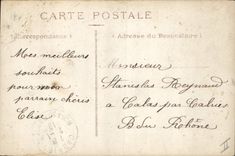 CARTE POSTALE
Correspondance
Adresse du Destinataire
Mes meilleurs
souhaits
pour mon
parrain chéris
Elise
Monsieur
Stanislas Reynaud
a Calas par Cabriès
B du Rhône